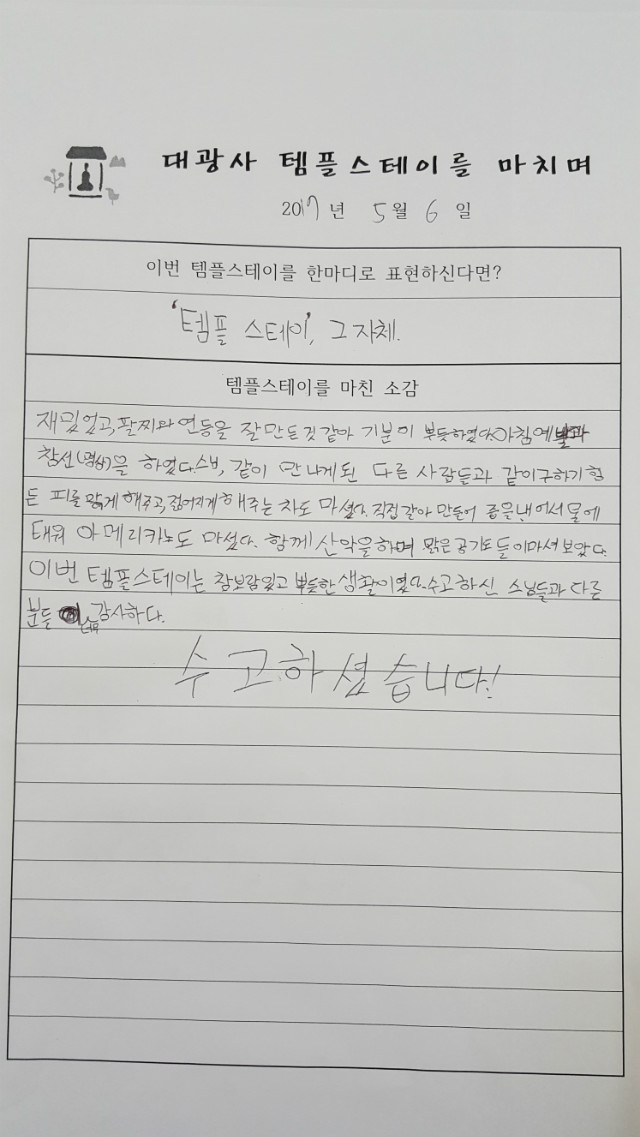 대광사 템플스테이를 마치며
2017년 5월 6일
이번 템플스테이를 한마디로 표현하신다면?
'템플 스테이', 그 자체.
템플스테이를 마친 소감
재밌었고, 팔찌와 연등을 잘 만든것 같아 기분이 뿌듯하였다. 아침 예불과
참선(명상)을 하였다. 같이 만나게 된 다른 사람들과 같이 구하기 힘
든 피를 맑게 해주고, 젊어지게 해주는 차도 마셨다. 직접 갈아 만들어 즙을 내어서 물에
태워 아메리카노도 마셨다. 함께 산악을하며 맑은 공기도 들이마셔 보았다.
이번 템플스테이는 참 보람있고 뿌듯한 생활이였다. 수고하신 스님들과 다른
분들 감사하다.
수고하셨습니다!